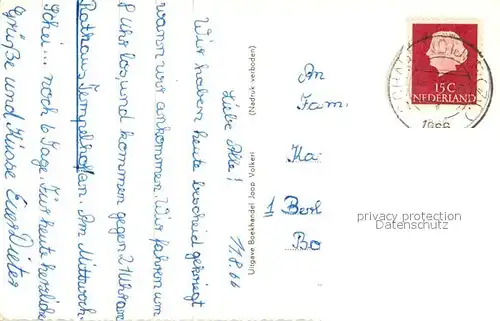 11.8.66
Liebe Alle!
Wir haben heute bescheid gekriegt
wann wir ankommen. Wir fahren um
8 Uhr los, und kommen gegen 21 Uhr am
Rathaus Tempelhof an. Am Mittwoch.
noch 6 Tage. Für heute herzliche
Grüße und Küsse Euer Dieter
(Nadruk verboden)
Uitgave Boekhandel Jaap Volkers
An
Fam.
Ka
1 Berl
Bo
15C
NEDERLAND
1966
privacy protection
Datenschutz